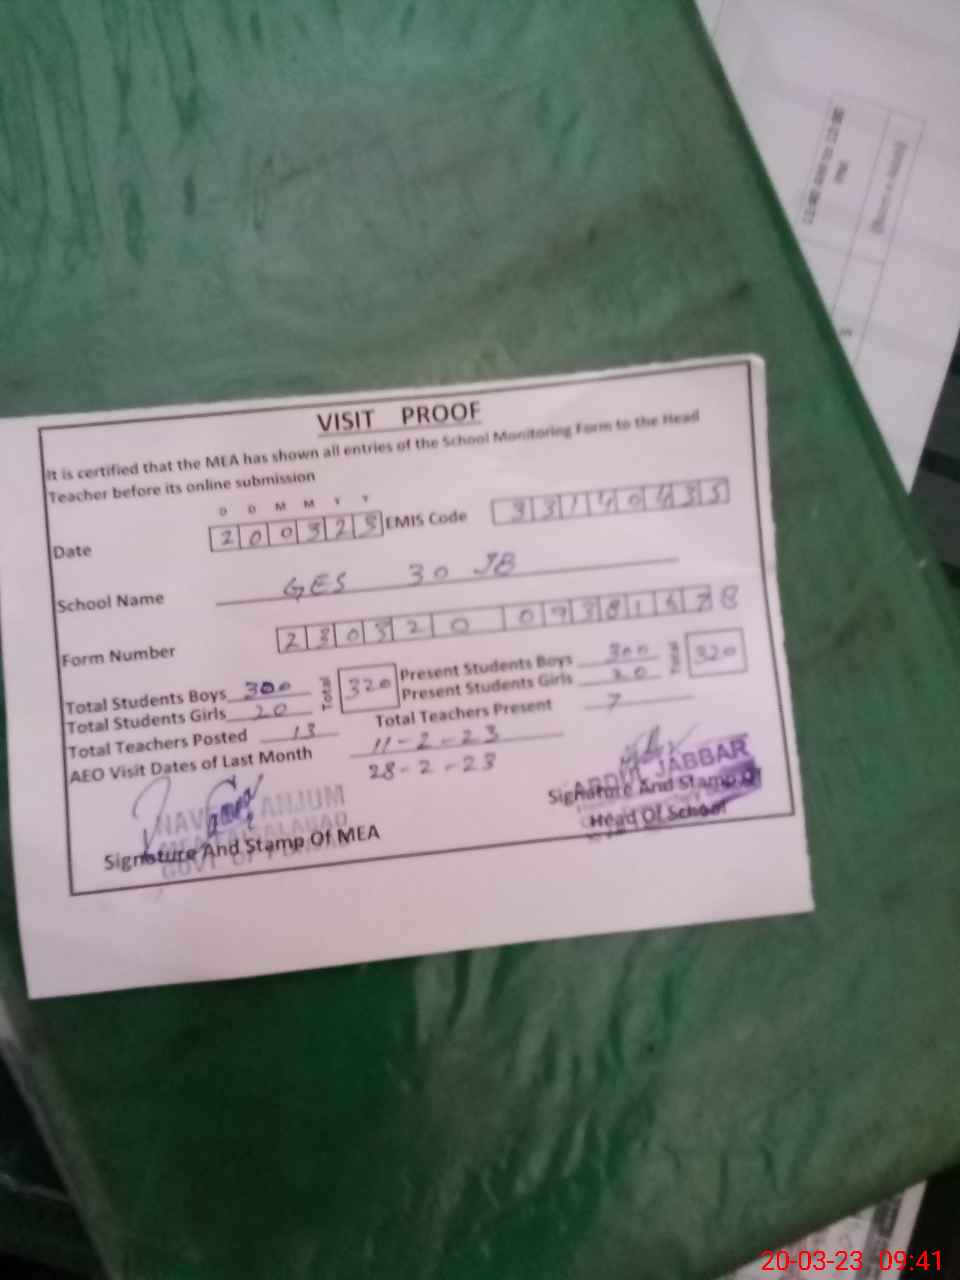 VISIT PROOF
It is certified that the MEA has shown all entries of the School Monitoring Form to the Head
Teacher before its online submission
D D M M Y Y
Date 200323 EMIS Code 33140435
School Name GES 30 JB
Form Number
Total Students Boys 300 Total 320 Present Students Boys 300 Total 320
Total Students Girls 20 Present Students Girls 20
Total Teachers Posted 13 Total Teachers Present 7
AEO Visit Dates of Last Month 11-2-23
28-2-23
ANJUM
ABDUL JABBAR
Signature And Stamp Of MEA
Signature And Stamp Of
Head Of School
20-03-23 09:41